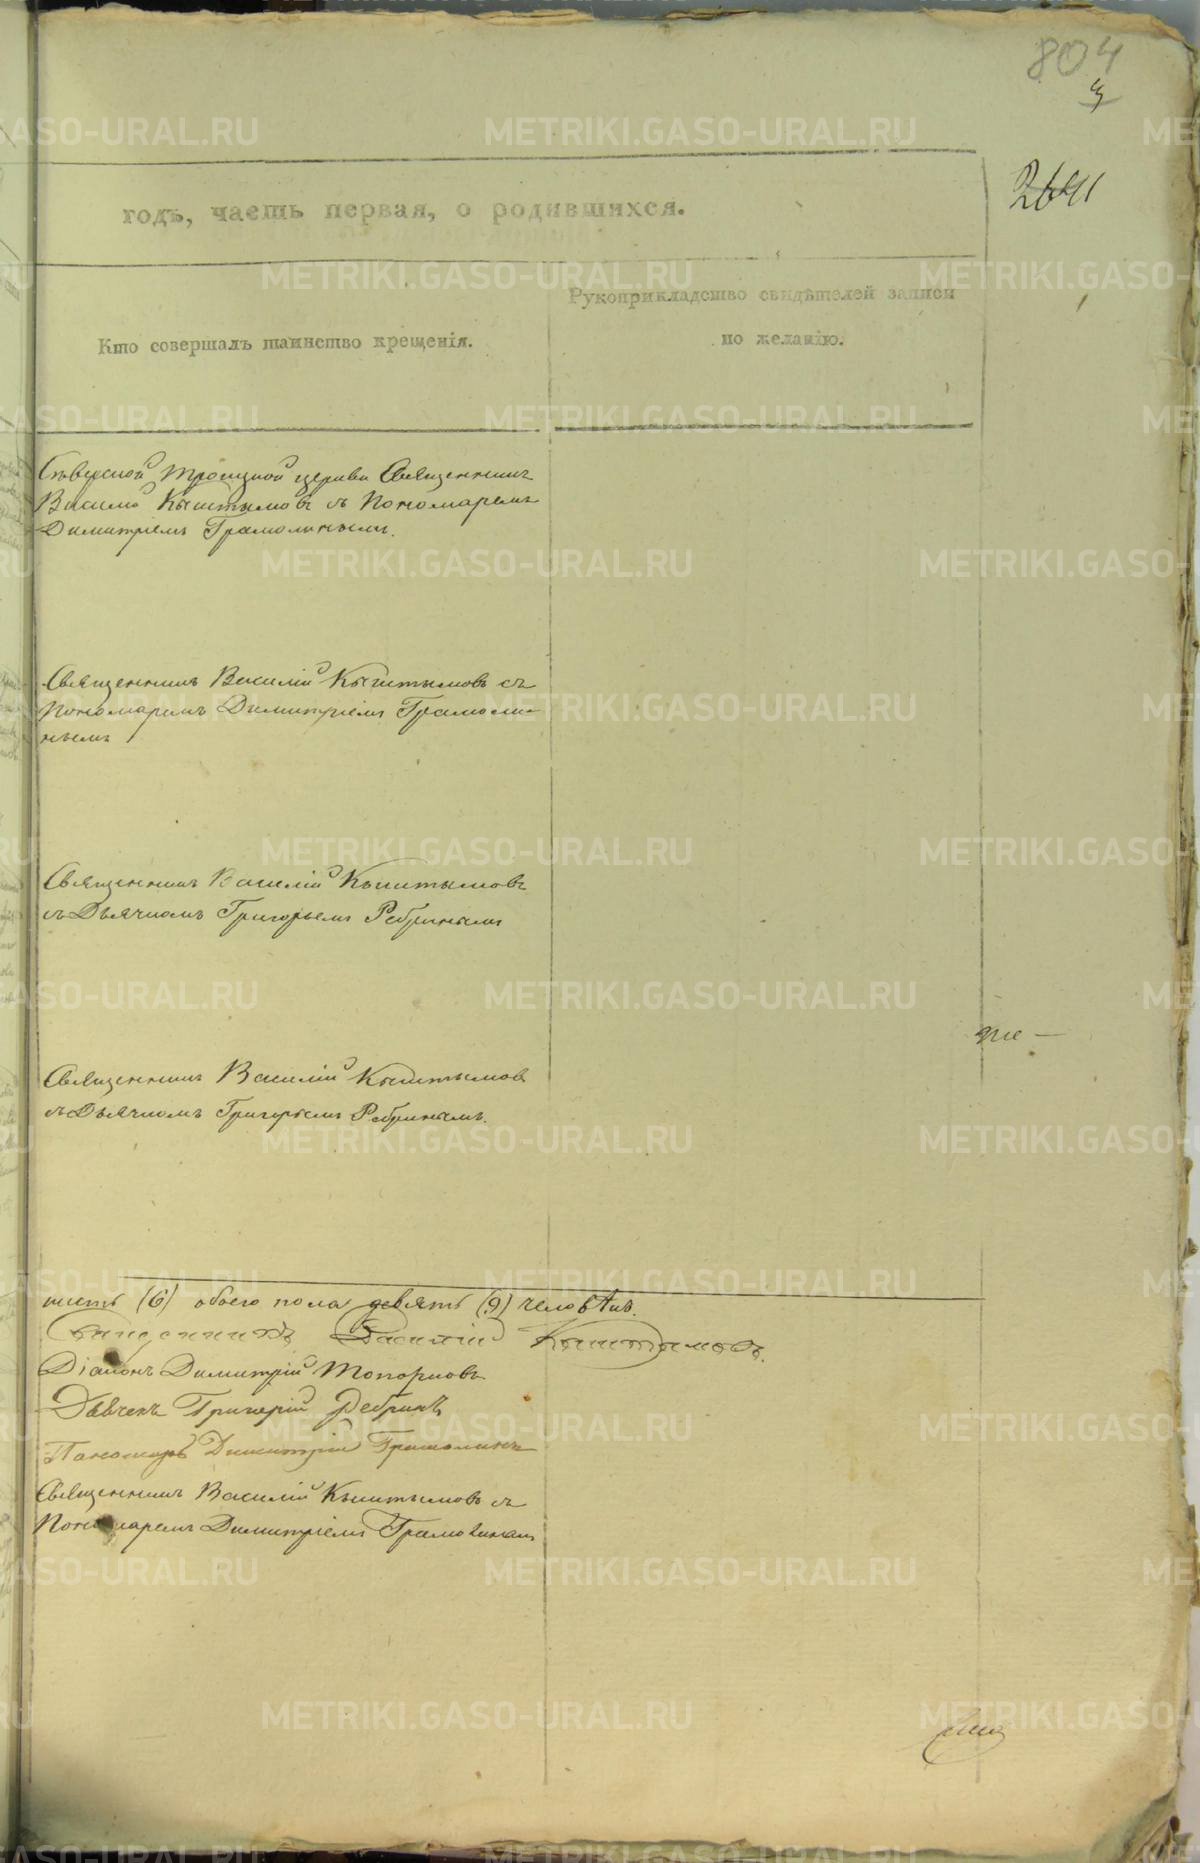 804
3
2641
годъ, часть первая, о родившихся.
Кто совершалъ таинство крещенія.
Рукоприкладство свидѣтелей записи
по желанію.
Сѣверской Троицкой церкви Священникъ
Василій Кыштымовъ съ Пономаремъ
Димитріемъ Грамолинымъ.
Священникъ Василій Кыштымовъ съ
Пономаремъ Димитріемъ Грамоли-
нымъ
Священникъ Василій Кыштымовъ
съ Дьячкомъ Григорьемъ Ребринымъ
Священникъ Василій Кыштымовъ
съ Дьячкомъ Григорьемъ Ребринымъ.
шесть (6) обоего пола девять (9) человѣкъ.
Священникъ Василій Кыштымовъ.
Діаконъ Димитрій Топорковъ
Дьячекъ Григорій Ребринъ
Пономарь Димитрій Грамолинъ
Священникъ Василій Кыштымовъ съ
Пономаремъ Димитріемъ Грамолинымъ
METRIKI.GASO-URAL.RU